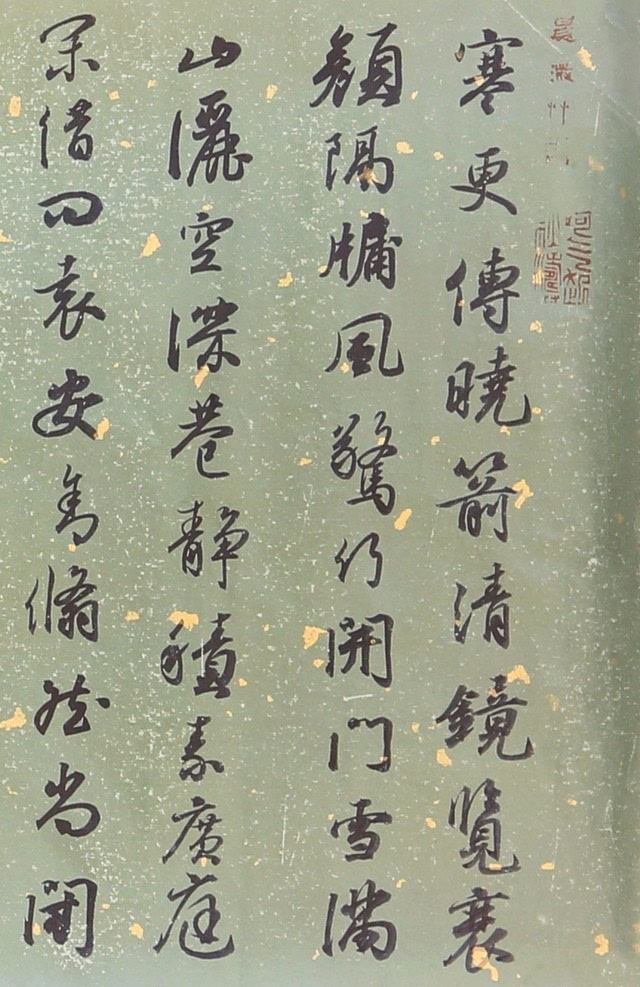 寒更傳曉箭清鏡覽衰
顏隔牖風驚竹開門雪滿
山灑空深巷靜積素廣庭
閑借問袁安舍翛然尚閉